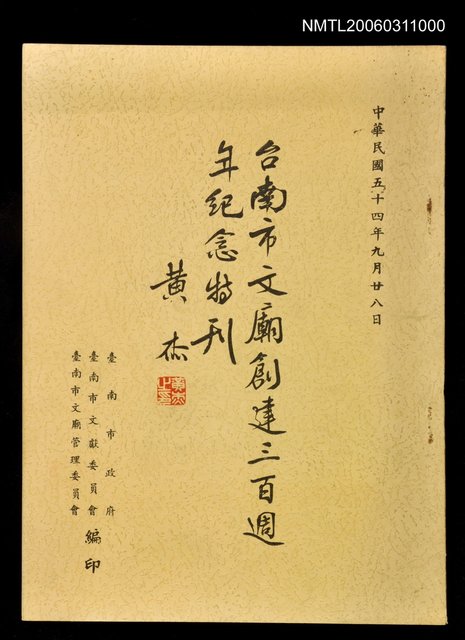 NMTL20060311000
中華民國五十四年九月廿八日
台南市文廟創建三百週
年紀念特刊
黃杰
臺南市政府
臺南市文獻委員會
臺南市文廟管理委員會
編印